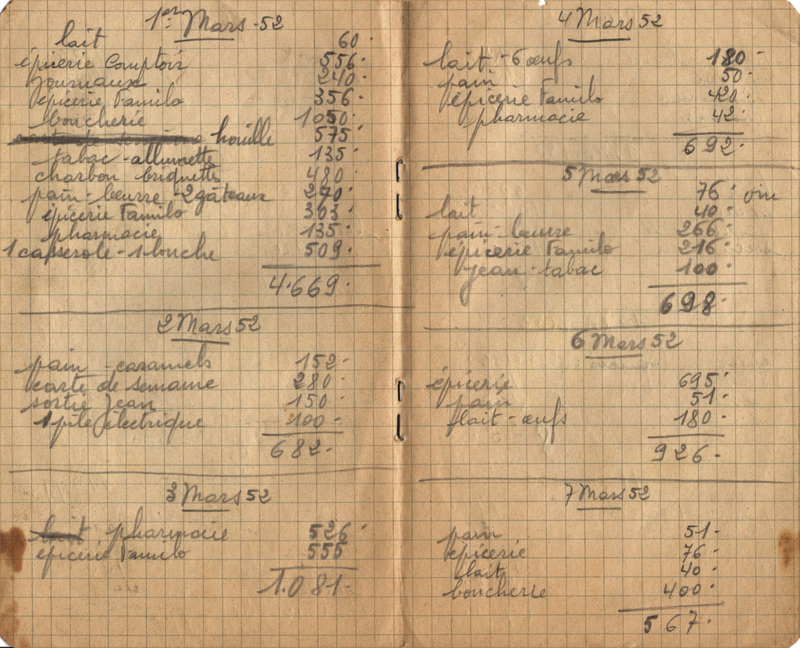 1er Mars-52
lait 60
épicerie Comptoir 556
journaux 240
épicerie Familo 356
boucherie 1050
houille 575
tabac-allumettes 135
charbon briquettes 480
pain-beurre-2gâteaux 270
épicerie Familo 303
pharmacie 135
1 casserole-1 louche 509
4.669
2 Mars 52
pain-caramels 152
carte de semaine 280
sortie Jean 150
1 pile électrique 100
682
3 Mars 52
lait pharmacie 526
épicerie Familo 555
1.081
4 Mars 52
lait-6 œufs 180
pain 50
épicerie Familo 420
pharmacie 42
692
5 Mars 52
76 vin
lait 40
pain-beurre 266
épicerie Familo 216
Jean-tabac 100
698
6 Mars 52
épicerie 695
pain 51
lait-œufs 180
926
7 Mars 52
pain 51
épicerie 76
lait 40
boucherie 400
567